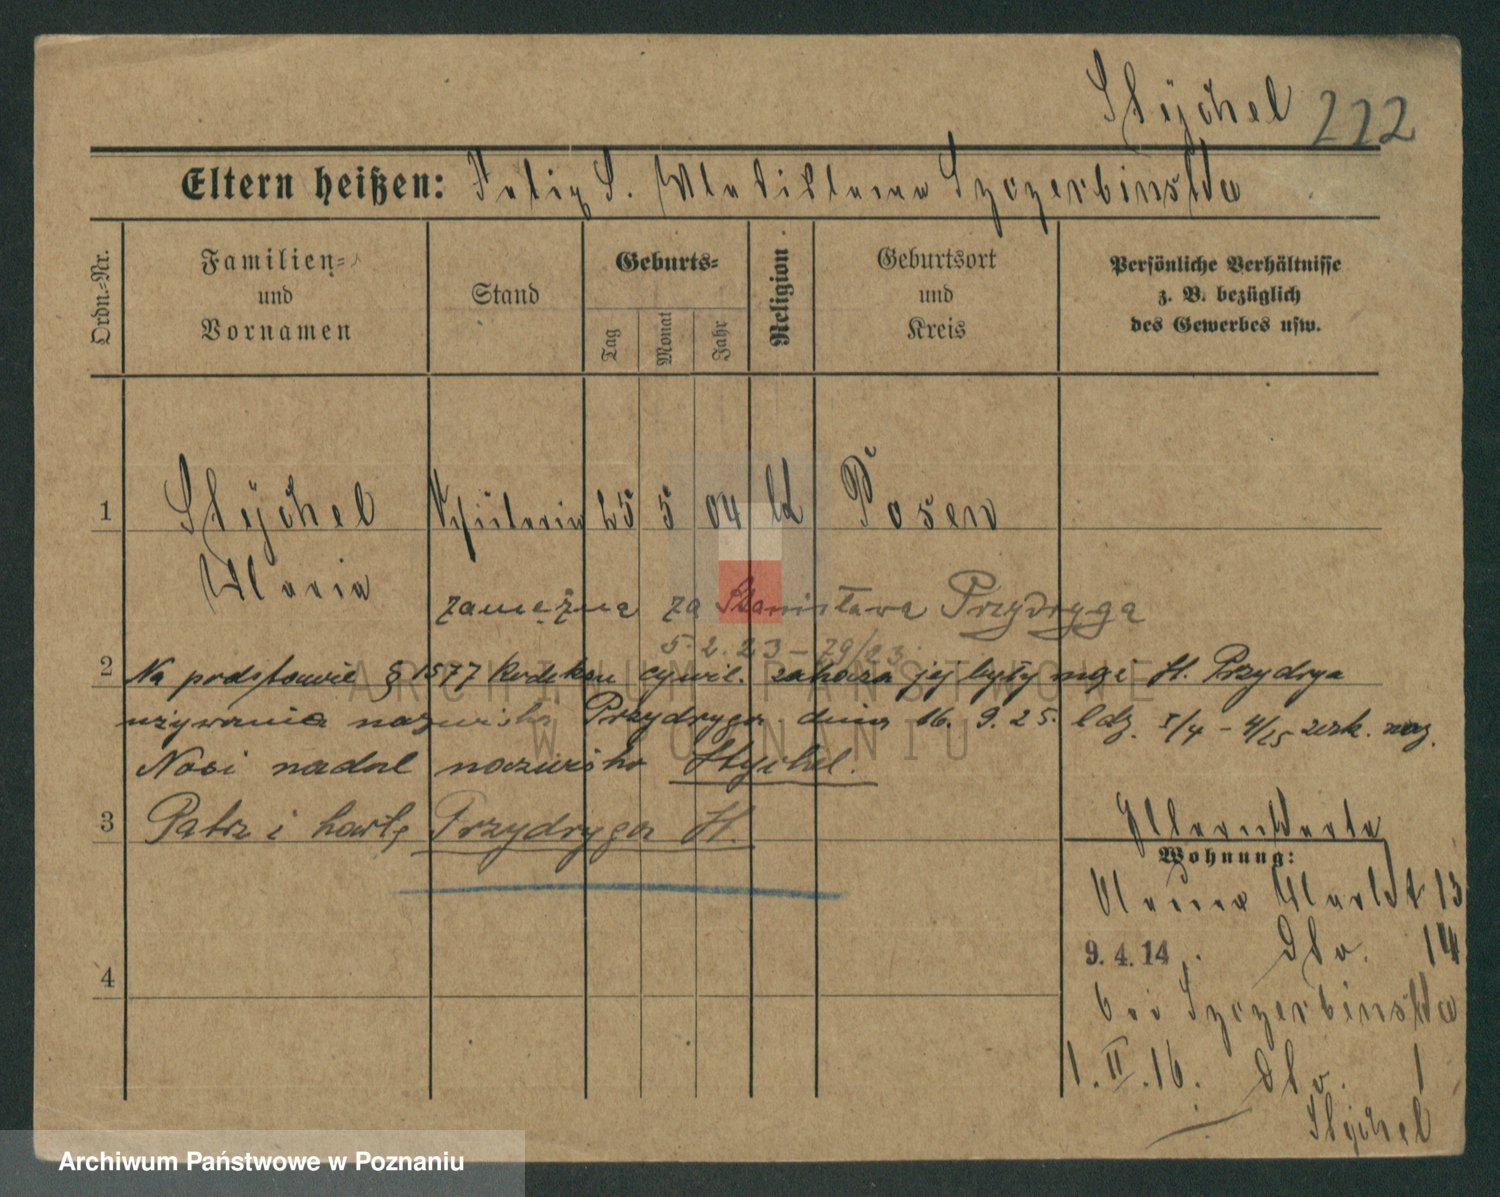 Stÿchel 222
Eltern heißen: Felix S. Wladislawa Szczerbinska
Ordn.-Nr.
Familien-
und
Vornamen
Stand
Geburts-
Tag
Monat
Jahr
Religion
Geburtsort
und
Kreis
Persönliche Verhältnisse
z. B. bezüglich
des Gewerbes usw.
1 Stÿchel Schülerin 25 5 04 kt Posen
Maria
zamężna za Stanisława Przydryga
5.2.23 - 79/23
2 Na podstawie § 1577 kodeksu cywil. zakaza jej były mąż St. Przydryga
używania nazwiska Przydryga dnia 16. 9. 25. ldz. I/4 - 4/25
Nosi nadal nazwisko Stychel.
3 Patrz i kartę Przydryga St.
4
Elternkarte
Wohnung:
Neuer Markt 13
9.4.14. Dto. 14
bei Szczerbinska
1. II. 16. Dto. 1
Stÿchel
ARCHIWUM PAŃSTWOWE
W POZNANIU
Archiwum Państwowe w Poznaniu